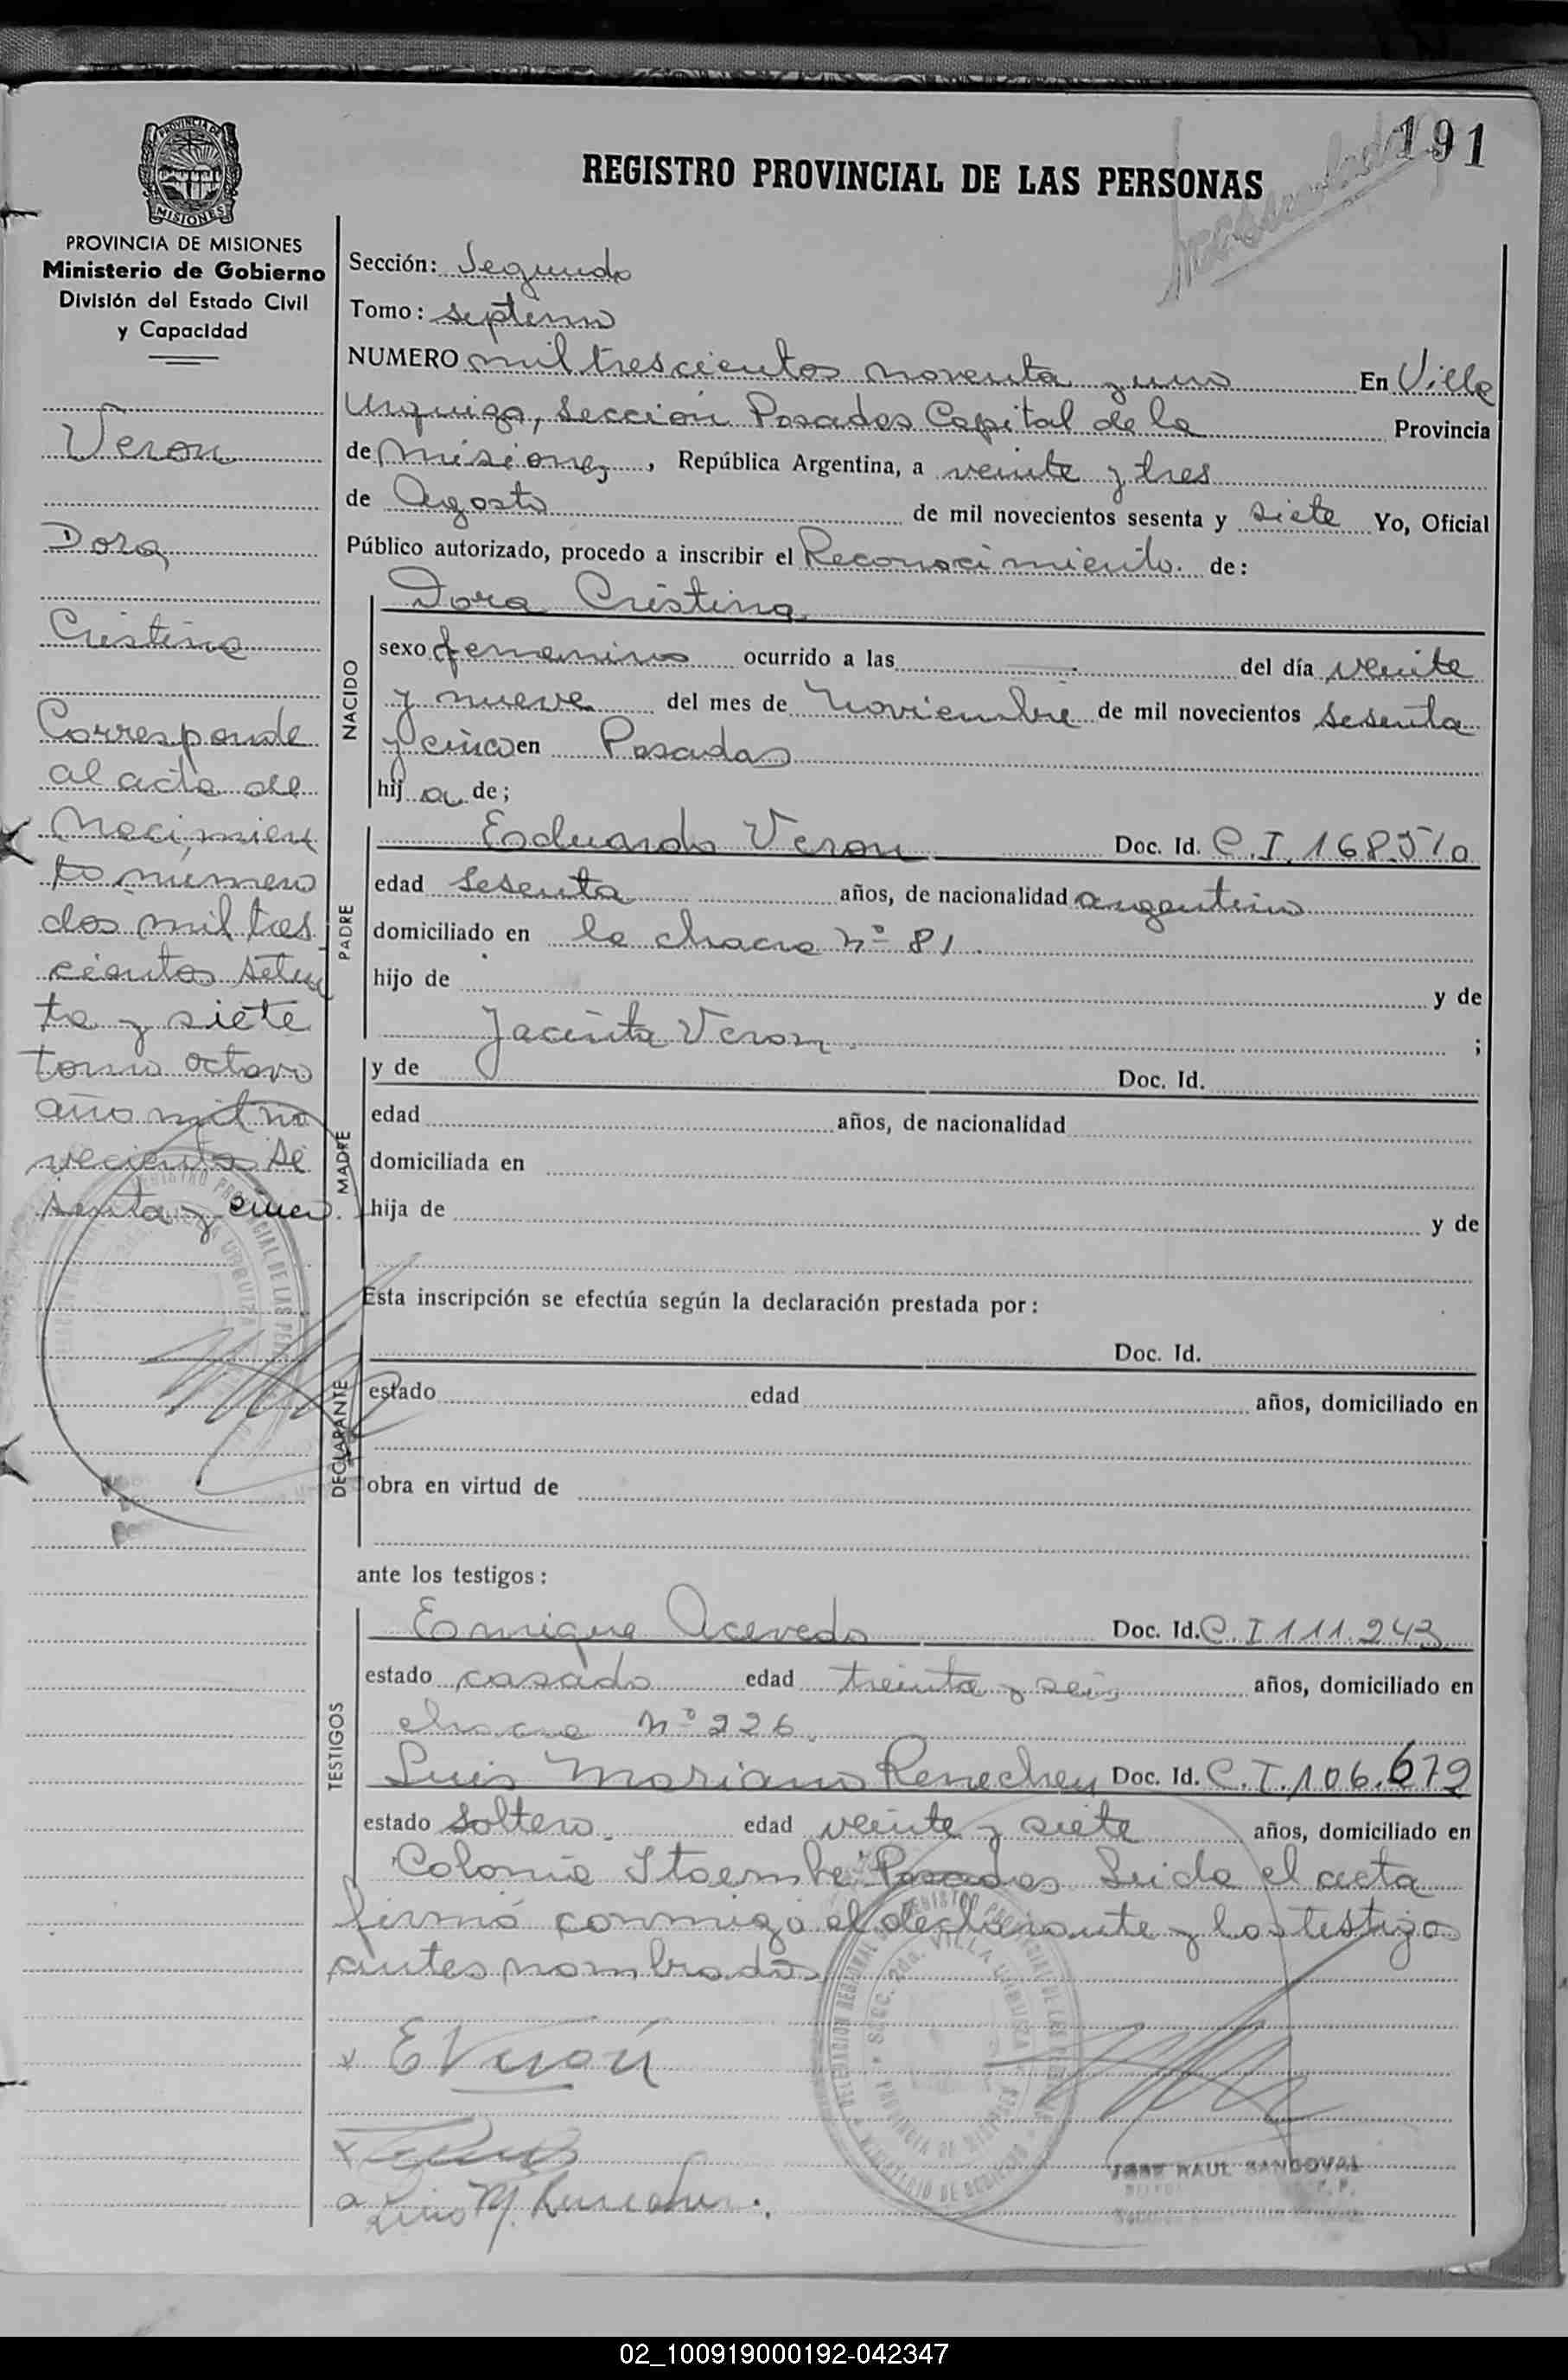 191
REGISTRO PROVINCIAL DE LAS PERSONAS
PROVINCIA DE
MISIONES
PROVINCIA DE MISIONES
Ministerio de Gobierno
División del Estado Civil
y Capacidad
Veron
Dora
Cristina
Corresponde
al acta de
Nacimien
to número
dos mil tres
cientos seten
ta y siete
tomo octavo
año mil no
vecientos se
senta y cinco.
Sección: Segunda
Tomo: septimo
NUMERO mil trescientos noventa y uno En Villa
Urquiza, Sección Posadas Capital de la Provincia
de Misiones, República Argentina, a veinte y tres
de Agosto de mil novecientos sesenta y siete Yo, Oficial
Público autorizado, procedo a inscribir el Reconocimiento. de:
NACIDO
Dora Cristina
sexo femenino ocurrido a las del día veinte
y nueve del mes de Noviembre de mil novecientos sesenta
y cinco en Posadas
hij a de;
PADRE
Eduardo Veron Doc. Id. C.I. 168.510
edad sesenta años, de nacionalidad argentino
domiciliado en la chacra Nº 81.
hijo de y de
Jacinta Veron. ;
MADRE
y de Doc. Id.
edad años, de nacionalidad
domiciliada en
hija de y de
Esta inscripción se efectúa según la declaración prestada por:
DECLARANTE
Doc. Id.
estado edad años, domiciliado en
obra en virtud de
ante los testigos:
TESTIGOS
Enrique Acevedo Doc. Id. C.I 111.243
estado casado edad treinta y seis años, domiciliado en
chacra Nº 226.
Luis Mariano Renechen Doc. Id. C.I. 106.672
estado Soltero. edad veinte y siete años, domiciliado en
Colonia Itaembe Posadas Leida el acta
firmó conmigo el declarante y los testigos
antes nombrados
E Verón
Luis M.
REGISTRO PROVINCIAL DE LAS PERSONAS
DELEGACION REGIONAL
SECC. 2da. VILLA URQUIZA
PROVINCIA DE MISIONES
MINISTERIO DE GOBIERNO
JOSE RAUL SANDOVAL
02_100919000192-042347